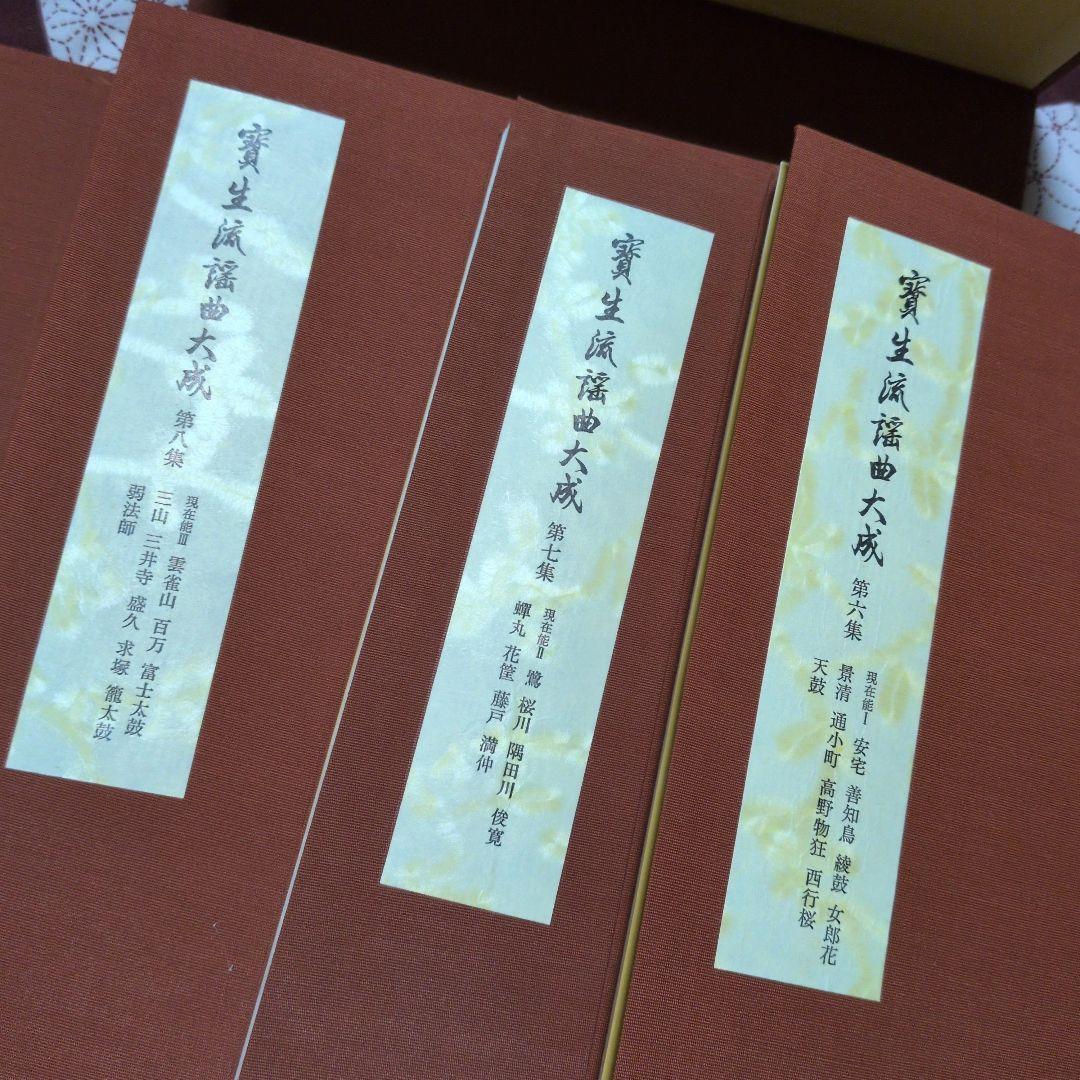 寶生流謡曲大成 第六集
現在能Ⅰ 安宅 善知鳥 綾鼓 女郎花
景清 通小町 高野物狂 西行桜
天鼓
寶生流謡曲大成 第七集
現在能Ⅱ 鷺 桜川 隅田川 俊寛
蟬丸 花筐 藤戸 満仲
寶生流謡曲大成 第八集
現在能Ⅲ 雲雀山 百万 富士太鼓
三山 三井寺 盛久 求塚 籠太鼓
弱法師